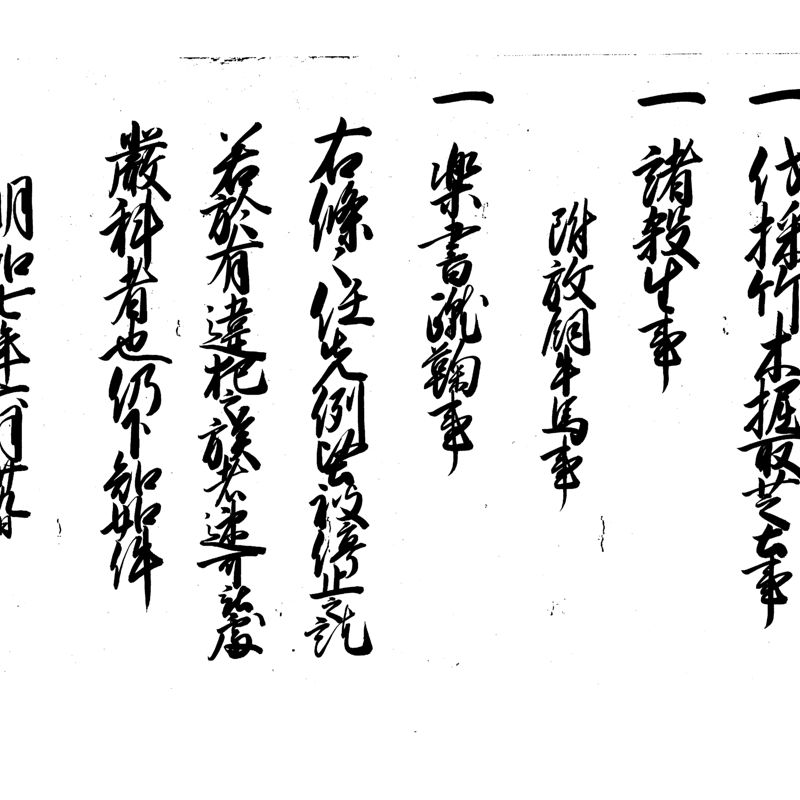 一 伐採竹木掘取芝土事
一 諸殺生事
附放飼牛馬事
一 楽書蹴鞠事
右條々任先例堅被停止之訖
若於有違犯之族者速可被處
嚴科者也仍下知如件
明和七年六月